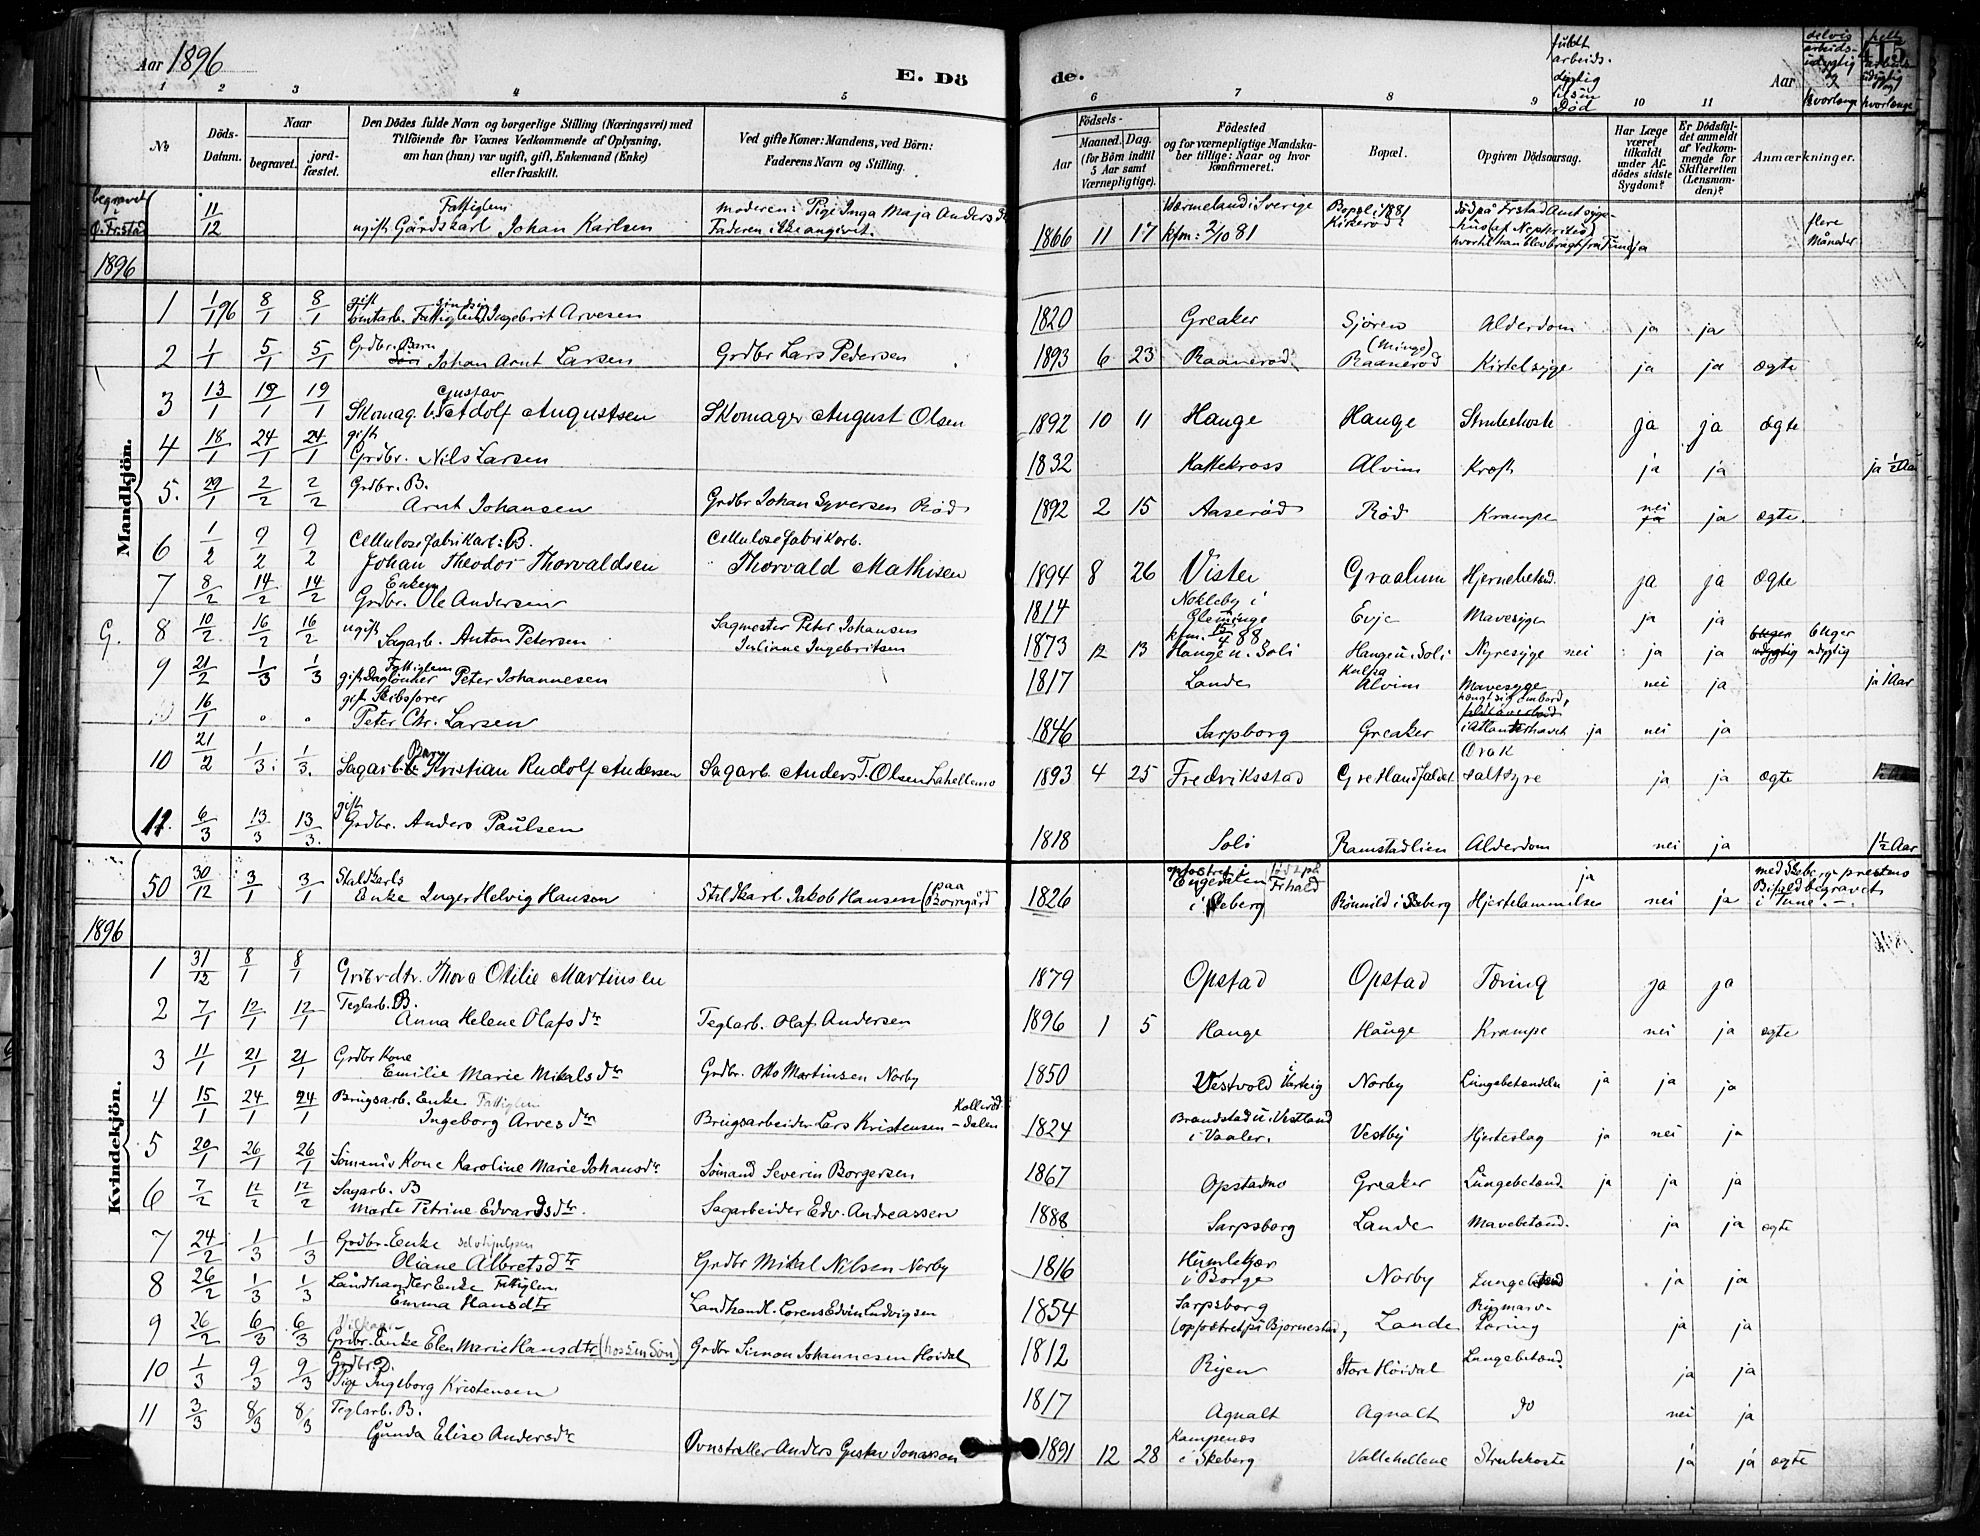 Aar 1896
E. Dö
de.
Aar
415
fuldt arbeids- dygtig til sin Død
delvis arbeids- udygtig og hvorlænge
helt arbeids udygtig og hvorlænge
1 2 3 4 5 6 7 8 9 10 11
No
Döds-Datum.
Naar
begravet.
jord-fæstet.
Den Dödes fulde Navn og borgerlige Stilling (Næringsvei) med
Tilföiende for Voxnes Vedkommende af Oplysning,
om han (hun) var ugift, gift, Enkemand (Enke)
eller fraskilt.
Ved gifte Koner: Mandens, ved Börn:
Faderens Navn og Stilling.
Födsels-
Aar
Maaned. Dag.
(for Börn indtil 5 Aar samt Værnepligtige).
Födested
og for værnepligtige Mandskaber tillige: Naar og hvor konfirmeret.
Bopæl.
Opgiven Dödsaarsag.
Har Læge været tilkaldt under Afdödes sidste Sygdom?
Er Dödsfaldet anmeldt af Vedkommende for Skifteretten (Lensmanden)?
Anmærkninger.
Mandkjön.
begravet i Frstad
11/12 Fattiglem ugift Gårdskarl Johan Karlsen Moderen: Pige Inga Maja Andersdr Faderen ikke angivet. 1866 11 17 Wærmeland i Sverige kfm: 2/10 81 Bopæl i 1881 Kirkerød? Død på Frstad Amtsyge-hus af Nephritis hvortil han blev bragt fra Tune ja flere Måneder
1896
1 1/1 96 8/1 8/1 gift Tomtarb. Fattiglem sindsyg Ingebrit Arvesen 1820 Greaker Sjøren Alderdom ja ja
2 1/1 5/1 5/1 Grdbr. Barn Johan Arnt Larsen Grdbr Lars Pedersen 1893 6 23 Raanerød (Minge) Raanerød Kirtelsyge ja ja ægte
3 13/1 19/1 19/1 Skomag. B. Gustav Adolf Augustsen Skomager August Olsen 1892 10 11 Hauge Hauge Strubehoste ja ja ægte
4 18/1 24/1 24/1 gift Grdbr. Nils Larsen 1832 Kattekross Alvim Kræft ja ja ja 1/2 Aar
5. 29/1 2/2 2/2 Grdbr. B. Arnt Johansen Grdbr Johan Syversen Rød 1892 2 15 Aaserød Rød Krampe nei ja ægte.
6 1/2 9/2 9/2 Cellulosefabrikarb: B. Johan Theodor Thorvaldsen Cellulosefabrikarb. Thorvald Mathisen 1894 8 26 Vister Graalum Hjernebetænd. ja ja ægte
7 8/2 14/2 14/2 Enkem Grdbr. Ole Andersen 1814 Nokleby i Glemminge Evje Mavesyge ja ja
G. 8 10/2 16/2 16/2 ugift Sagarb. Anton Petersen Sagmester Peter Johansen Juliane Ingebritsen 1873 12 13 kfm. 15/4 88 Hauge u. Soli Hauge u. Soli Nyresyge nei ja ja 6 uger udygtig
9 21/2 1/3 1/3 Fattiglem gift Daglønner Peter Johannesen 1817 Lande Kulpa Alvim Mavesyge nei ja ja 1 Aar
16/1 gift Skibsfører Peter Chr. Larsen 1846 Sarpborg Greaker hængt sig ombord, i Atlanterhavet ja nei ja
10 21/2 1/3 1/3 Sagarb. Barn Kristian Rudolf Andersen Sagarb. Anders T. Olsen Lahellemo 1893 4 25 Fredriksstad Gretlandfaldet Drak saltsyre ja ja ægte
11. 6/3 13/3 13/3 gift Grdbr. Anders Paulsen 1818 Soli Ramstadlien Alderdom nei ja 1 1/2 Aar
Kvindekjön.
50 30/12 3/1 3/1 Staldkarls Enke Inger Helvig Hansen Staldkarl Jakob Hansen (paa Borregård 1826 opfostret i Engedalen i Skeberg født på Frhald Rönnild i Skeberg Hjertelammelse ja nei ja med Skebergs prestens Bifald begravet i Tune.
1896
1 31/12 8/1 8/1 Grdbr-dtr. Thora Otilie Martinsen 1879 Opstad Opstad Tæring ja ja
2 7/1 12/1 12/1 Teglarb. B. Anna Helene Olafsdtr Teglarb. Olaf Andersen 1896 1 5 Hauge Hauge Krampe nei ja ægte
3 11/1 21/1 21/1 Grdbr Kone Emilie Marie Mikalsdtr Grdbr. Otto Martinsen Norby 1850 Vestvold i Varteig Norby Lungebetændelse ja ja ja
4 15/1 24/1 24/1 Brugsarb. Enke Fattiglem Ingeborg Arvesdtr Brugsarbeider Lars Kristensen – Kollerød-dalen 1824 Brandstad u. Vestland i Vaaler. Vestby Hjerteslag ja nei ja
5 20/1 26/1 26/1 Sömands Kone Karoline Marie Johansdtr Sömand Severin Borgersen 1867 Opstadmo Greaker Lungebetænd. ja ja ja
6 7/2 12/2 12/2 Sagarb. B Marte Petrine Edvardsdtr. Sagarbeider Edv. Andreassen 1888 Sarpsborg Lande Mavebetænd. ja ja ægte
7 24/2 1/3 1/3 Grdbr. Enke selvhjulpen Oliane Albretsdtr Grdbr Mikal Nilsen Norby 1816 Humlekjær i Borge Norby Lungebetænd ja ja
8 26/2 1/3 1/3 Landhandler Enke Fattiglem Emma Hansdtr Landhandl. Lorens Edvin Ludvigsen 1854 Sarpsborg (opfostret på Bjørnestad, Lande Rygmarv-tæring ja ja
9 26/2 6/3 6/3 Grdbr. Enke Elen Marie Hansdtr (hos sin Søn) Grdbr Simon Johannesen Høidal 1812 Ryen Store Høidal Lungebetænd. ja ja
10 1/3 9/3 9/3 Grdbr D. Pige Ingeborg Kristensen 1817 Agnalt Agnalt do nei ja
11 3/3 8/3 8/3 Teglarb. B. Gunda Elise Andersdr Ovnstæller Anders Gustav Jonasson 1891 12 28 Kampenes i Skeberg Vallehellene Strubehoste ja ja ægte